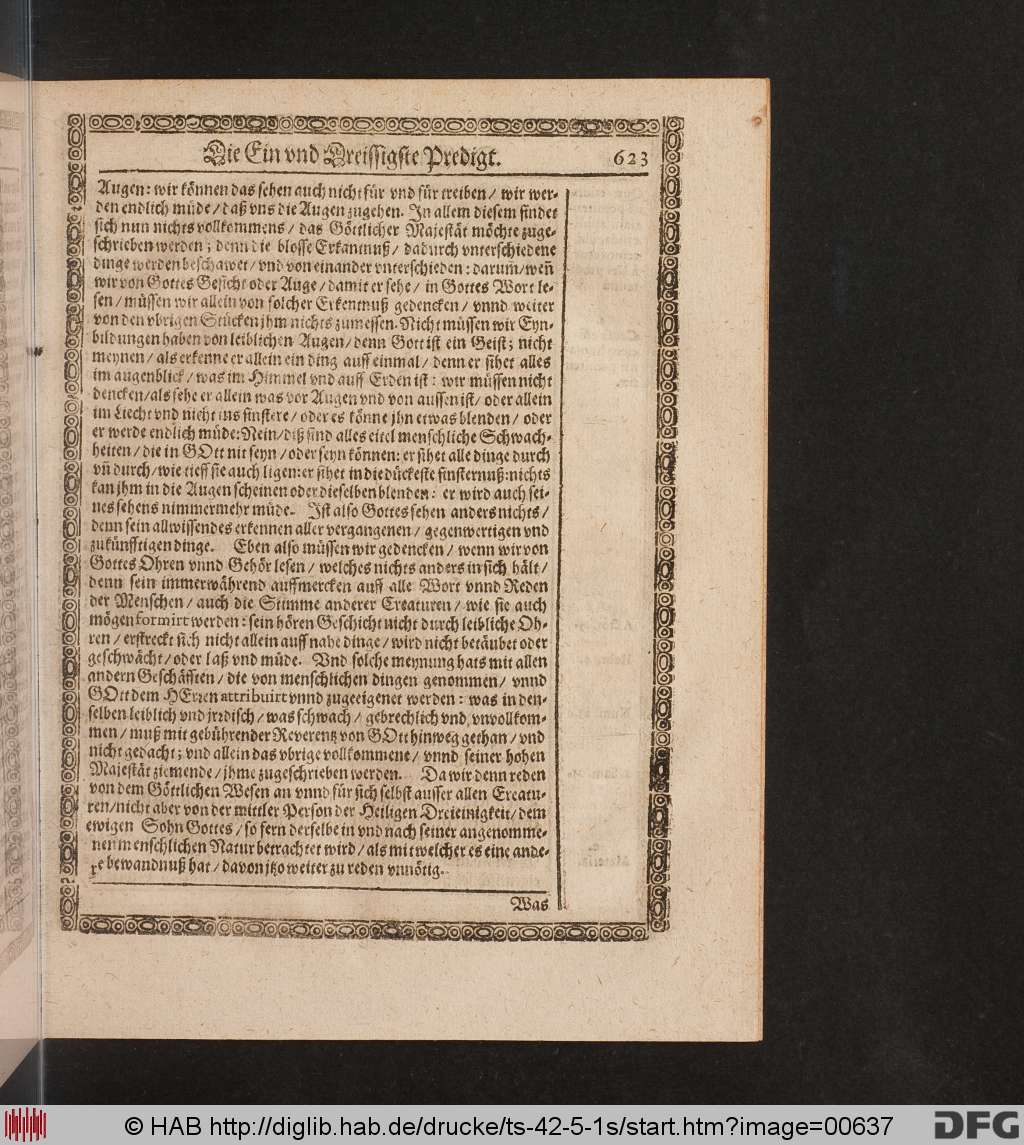 Die Ein vnd Dreissigste Predigt. 623
Augen: wir können das sehen auch nicht für vnd für treiben/ wir wer-
den endlich müde/ daß vns die Augen zugehen. In allem diesem findet
sich nun nichts vollkommens/ das Göttlicher Majestät möchte zuge-
schrieben werden; denn die blosse Erkantnuß/ dadurch vnterschiedene
dinge werden beschawet/ vnd von einander vnterschieden: darum/ weñ
wir von Gottes Gesicht oder Auge/ damit er sehe/ in Gottes Wort le-
sen/ müssen wir allein von solcher Erkentnuß gedencken/ vnnd weiter
von den vbrigen Stücken jhm nichts zumessen. Nicht müssen wir Eyn-
bildungen haben von leiblichen Augen/ denn Gott ist ein Geist; nicht
meynen/ als erkenne er allein ein ding auff einmal/ denn er sihet alles
im augenblick/ was im Himmel vnd auff Erden ist: wir müssen nicht
dencken/ als sehe er allein was vor Augen vnd von aussen ist/ oder allein
im Liecht vnd nicht ins finstere/ oder es könne jhn etwas blenden/ oder
er werde endlich müde: Nein/ diß sind alles eitel menschliche Schwach-
heiten/ die in GOtt nit seyn/ oder seyn können: er sihet alle dinge durch
vñ durch/ wie tieff sie auch ligen: er sihet in die dückeste finsternuß: nichts
kan jhm in die Augen scheinen oder dieselben blenden: er wird auch sei-
nes sehens nimmermehr müde. Ist also Gottes sehen anders nichts/
denn sein allwissendes erkennen aller vergangenen/ gegenwertigen vnd
zukünfftigen dinge. Eben also müssen wir gedencken/ wenn wir von
Gottes Ohren vnnd Gehör lesen/ welches nichts anders in sich hält/
denn sein immerwährend auffmercken auff alle Wort vnnd Reden
der Menschen/ auch die Stimme anderer Creaturen/ wie sie auch
mögen formirt werden: sein hören Geschicht nicht durch leibliche Oh-
ren/ erstreckt sich nicht allein auff nahe dinge/ wird nicht betäubet oder
geschwächt/ oder laß vnd müde. Vnd solche meynung hats mit allen
andern Geschäfften/ die von menschlichen dingen genommen/ vnnd
GOtt dem HErren attribuirt vnnd zugeeigenet werden: was in den-
selben leiblich vnd jrrdisch/ was schwach/ gebrechlich vnd vnvollkom-
men/ muß mit gebührender Reverentz von GOtt hinweg gethan/ vnd
nicht gedacht; vnd allein das vbrige vollkommene/ vnnd seiner hohen
Majestät ziemende/ jhme zugeschrieben werden. Da wir denn reden
von dem Göttlichen Wesen an vnnd für sich selbst ausser allen Creatu-
ren/ nicht aber von der mittler Person der Heiligen Dreieinigkeit/ dem
ewigen Sohn Gottes/ so fern derselbe in vnd nach seiner angenomme-
nen menschlichen Natur betrachtet wird/ als mit welcher es eine ande-
re bewandnuß hat/ davon jtzo weiter zu reden vnnötig.
Was
© HAB http://diglib.hab.de/drucke/ts-42-5-1s/start.htm?image=00637
DFG